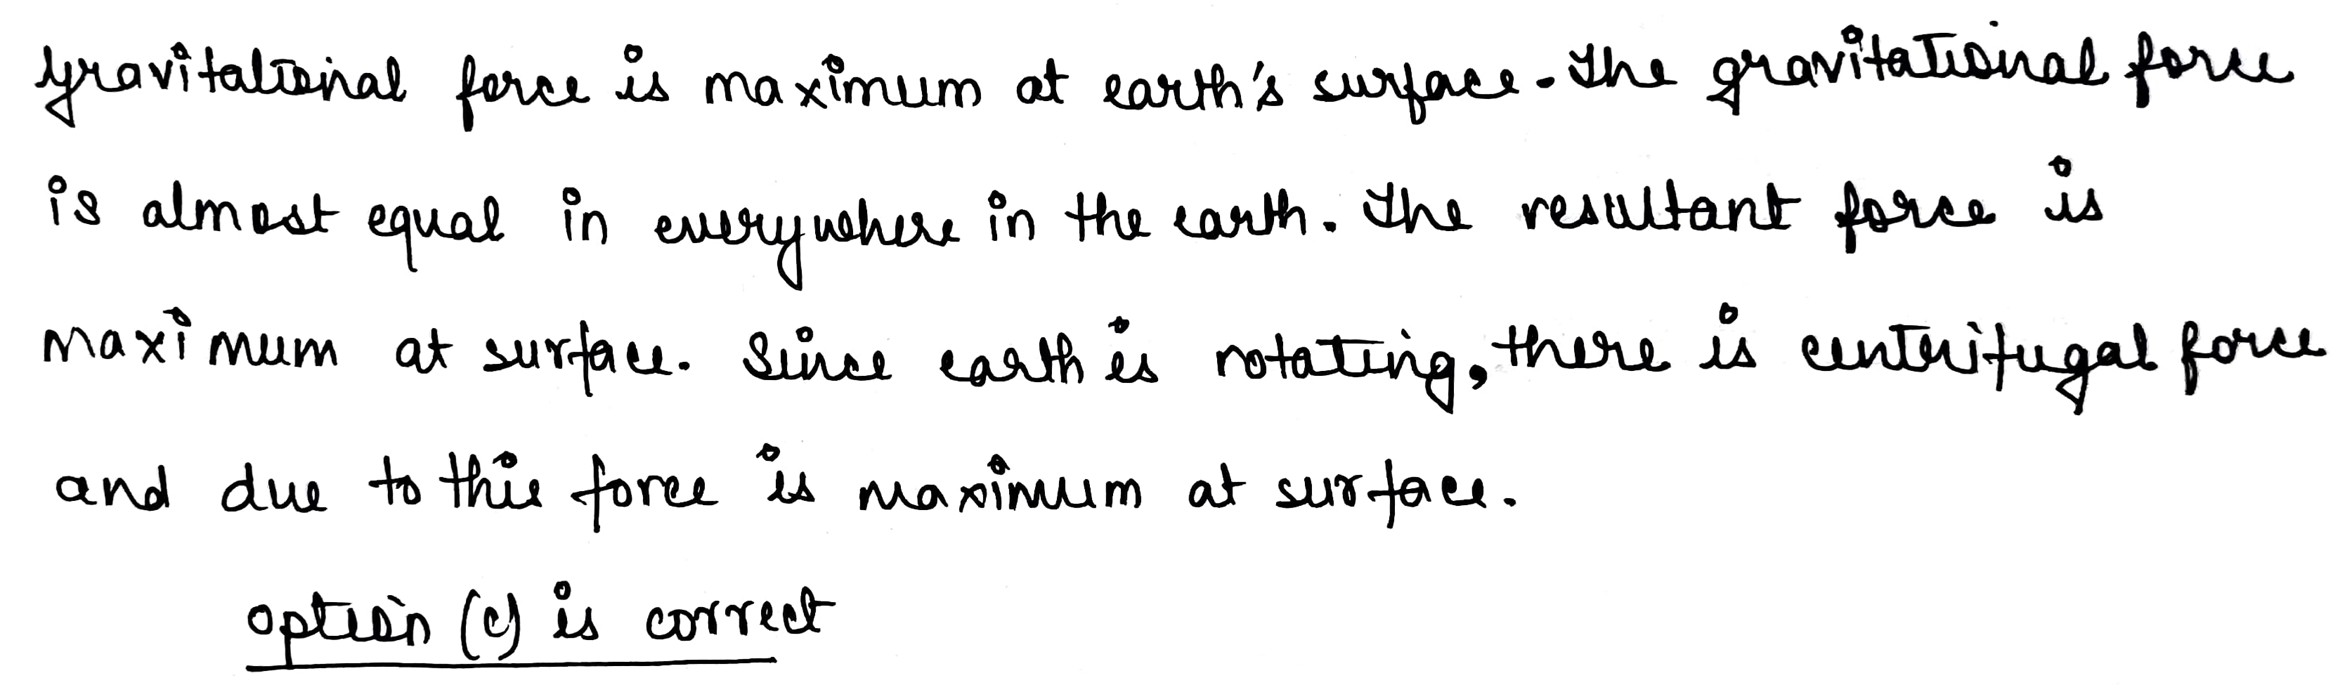 gravitational force is maximum at earth's surface. The gravitational force
is almost equal in everywhere in the earth. The resultant force is
maximum at surface. Since earth is rotating, there is centrifugal force
and due to this force is maximum at surface.
option (c) is correct